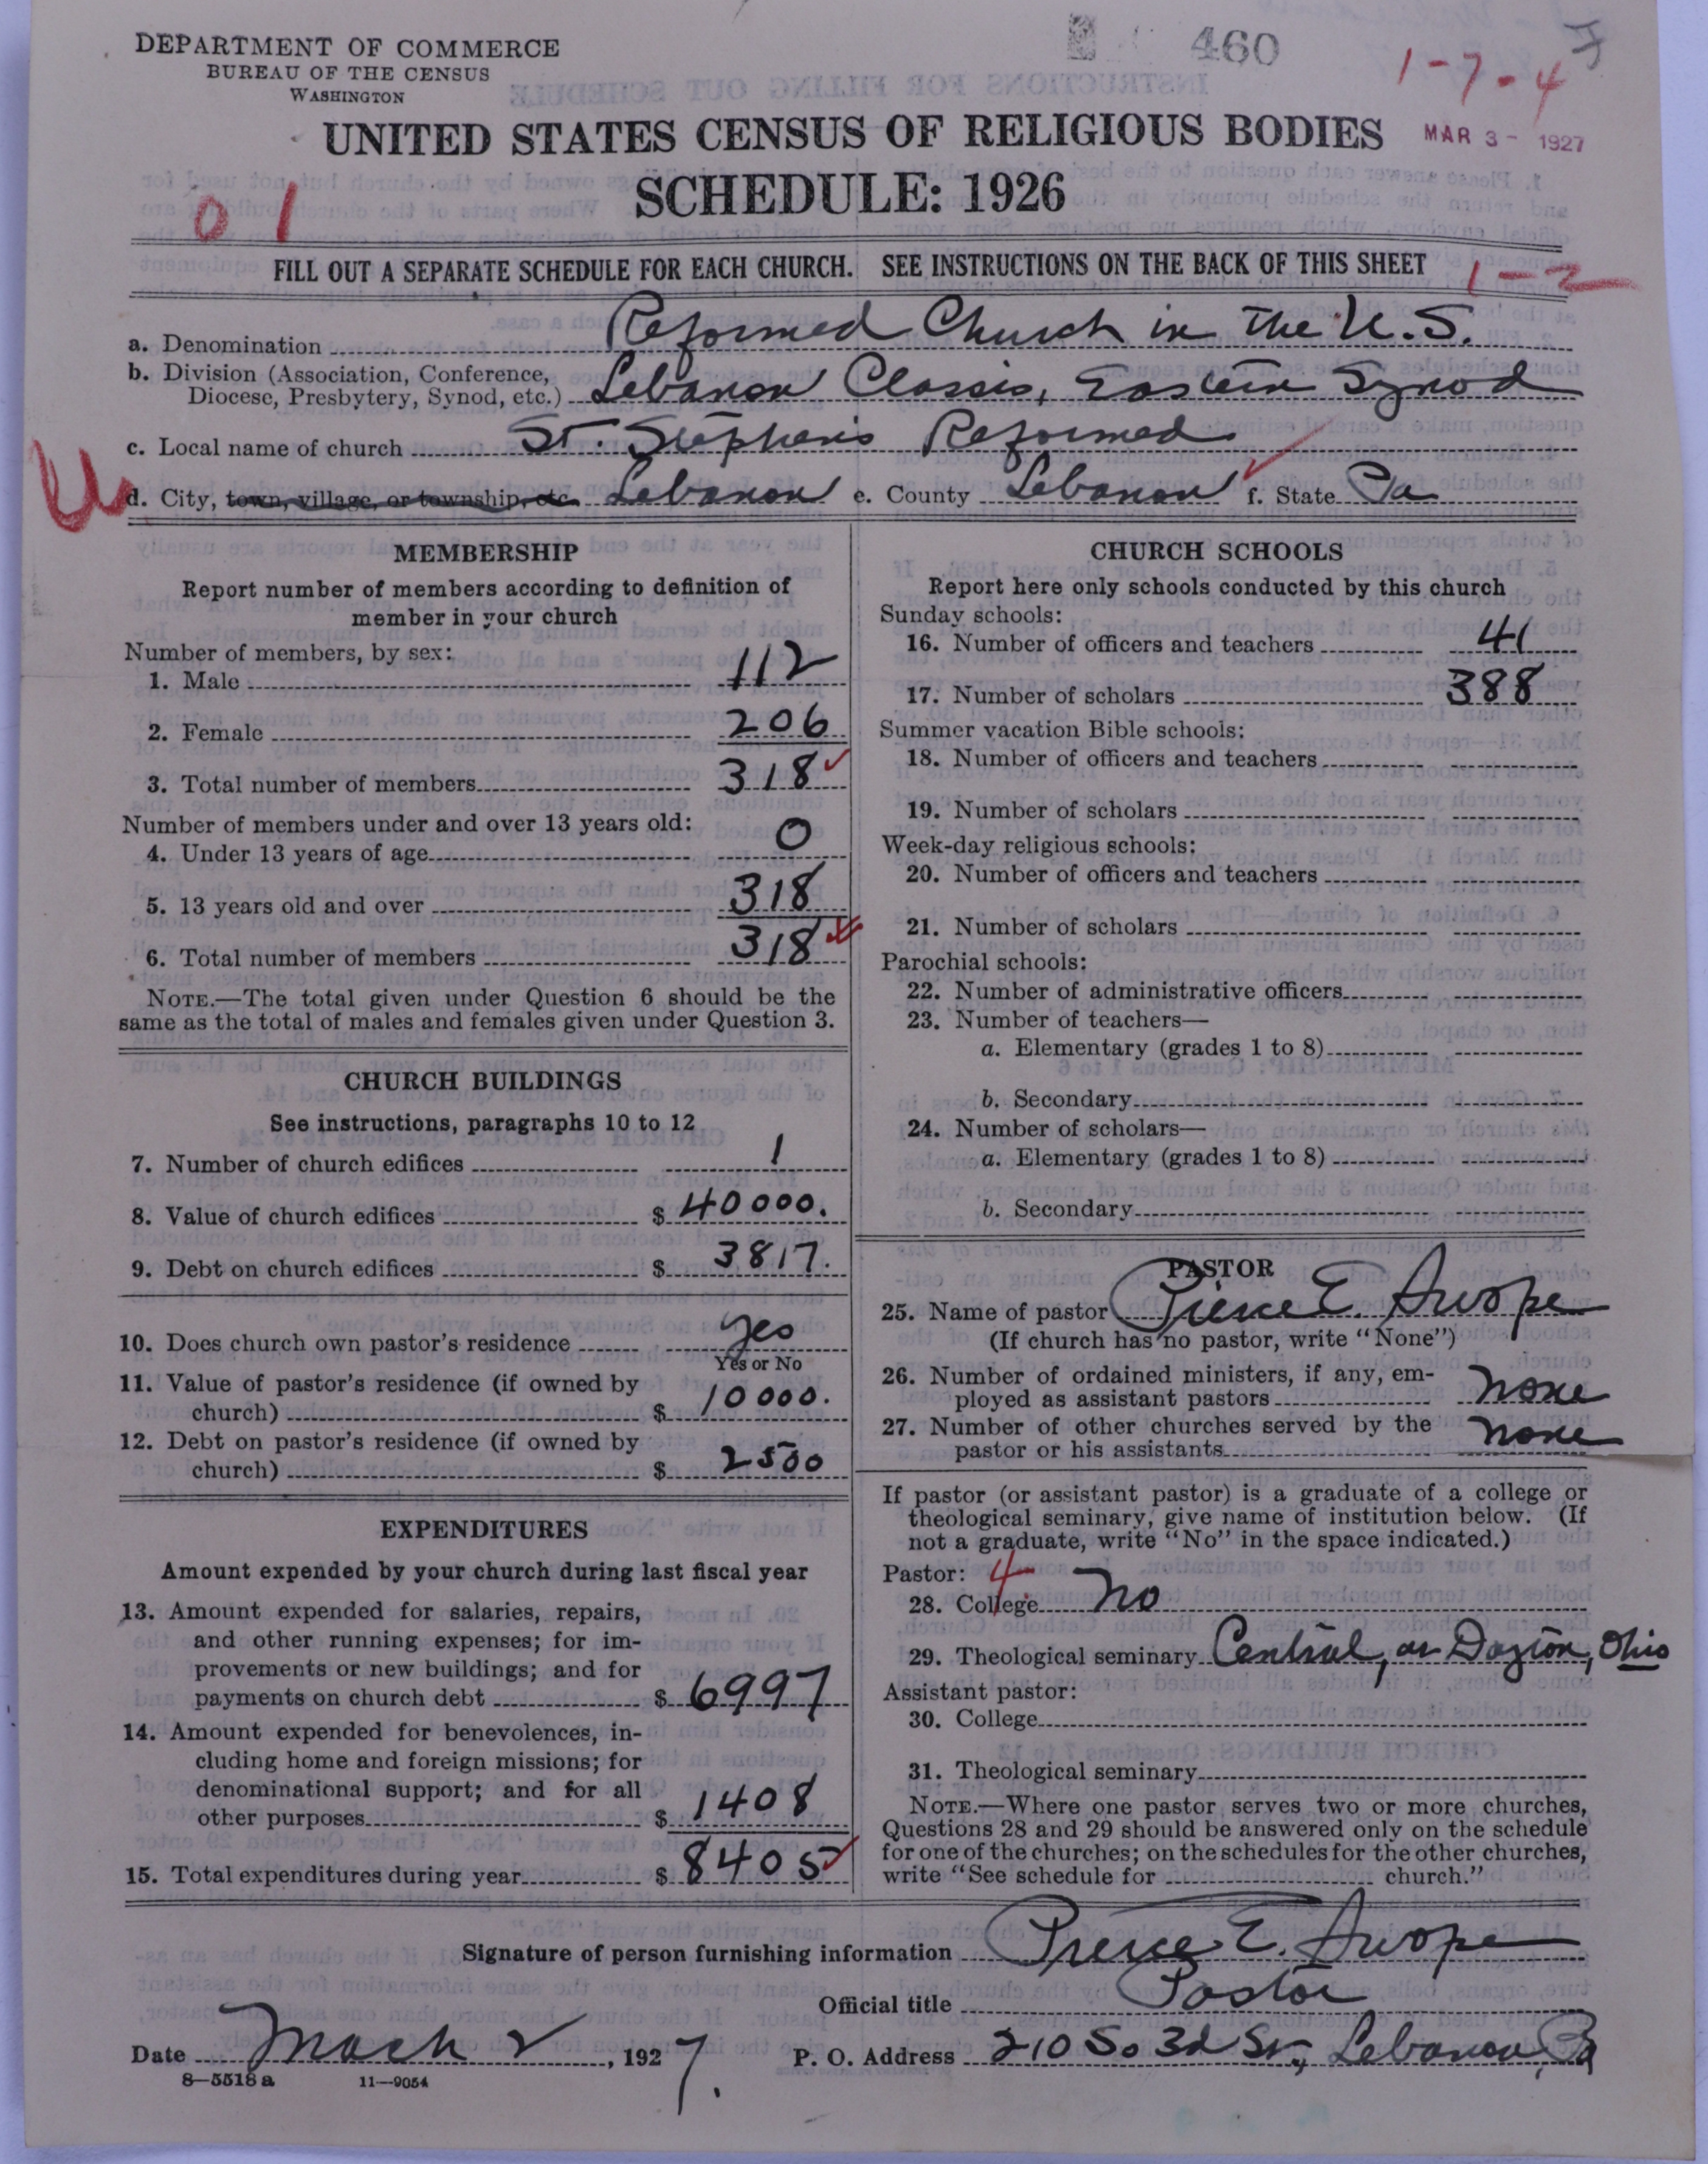 DEPARTMENT OF COMMERCE
BUREAU OF THE CENSUS
WASHINGTON
460
1-7-4
UNITED STATES CENSUS OF RELIGIOUS BODIES
MAR 3 - 1927
SCHEDULE: 1926
01
FILL OUT A SEPARATE SCHEDULE FOR EACH CHURCH. SEE INSTRUCTIONS ON THE BACK OF THIS SHEET
1-2
a. Denomination Reformed Church in the U.S.
b. Division (Association, Conference,
Diocese, Presbytery, Synod, etc.) Lebanon Classis, Eastern Synod
c. Local name of church St. Stephen's Reformed
d. City, town, village, or township, etc. Lebanon e. County Lebanon f. State Pa
MEMBERSHIP
Report number of members according to definition of
member in your church
Number of members, by sex:
1. Male 112
2. Female 206
3. Total number of members 318
Number of members under and over 13 years old:
4. Under 13 years of age 0
5. 13 years old and over 318
6. Total number of members 318
NOTE.—The total given under Question 6 should be the
same as the total of males and females given under Question 3.
CHURCH BUILDINGS
See instructions, paragraphs 10 to 12
7. Number of church edifices 1
8. Value of church edifices $ 40000.
9. Debt on church edifices $ 3817.
10. Does church own pastor's residence yes
Yes or No
11. Value of pastor's residence (if owned by
church) $ 10000.
12. Debt on pastor's residence (if owned by
church) $ 2500
EXPENDITURES
Amount expended by your church during last fiscal year
13. Amount expended for salaries, repairs,
and other running expenses; for im-
provements or new buildings; and for
payments on church debt $ 6997
14. Amount expended for benevolences, in-
cluding home and foreign missions; for
denominational support; and for all
other purposes $ 1408
15. Total expenditures during year $ 8405
CHURCH SCHOOLS
Report here only schools conducted by this church
Sunday schools:
16. Number of officers and teachers 41
17. Number of scholars 388
Summer vacation Bible schools:
18. Number of officers and teachers
19. Number of scholars
Week-day religious schools:
20. Number of officers and teachers
21. Number of scholars
Parochial schools:
22. Number of administrative officers
23. Number of teachers—
a. Elementary (grades 1 to 8)
b. Secondary
24. Number of scholars—
a. Elementary (grades 1 to 8)
b. Secondary
PASTOR
25. Name of pastor Pierce E. Swope
(If church has no pastor, write "None")
26. Number of ordained ministers, if any, em-
ployed as assistant pastors none
27. Number of other churches served by the
pastor or his assistants none
If pastor (or assistant pastor) is a graduate of a college or
theological seminary, give name of institution below. (If
not a graduate, write "No" in the space indicated.)
Pastor: 4
28. College no
29. Theological seminary Central, at Dayton, Ohio
Assistant pastor:
30. College
31. Theological seminary
NOTE.—Where one pastor serves two or more churches,
Questions 28 and 29 should be answered only on the schedule
for one of the churches; on the schedules for the other churches,
write "See schedule for church."
Signature of person furnishing information Pierce E. Swope
Official title Pastor
Date March 2, 1927.
P. O. Address 210 So 3d St, Lebanon, Pa
8—5518 a 11—9054